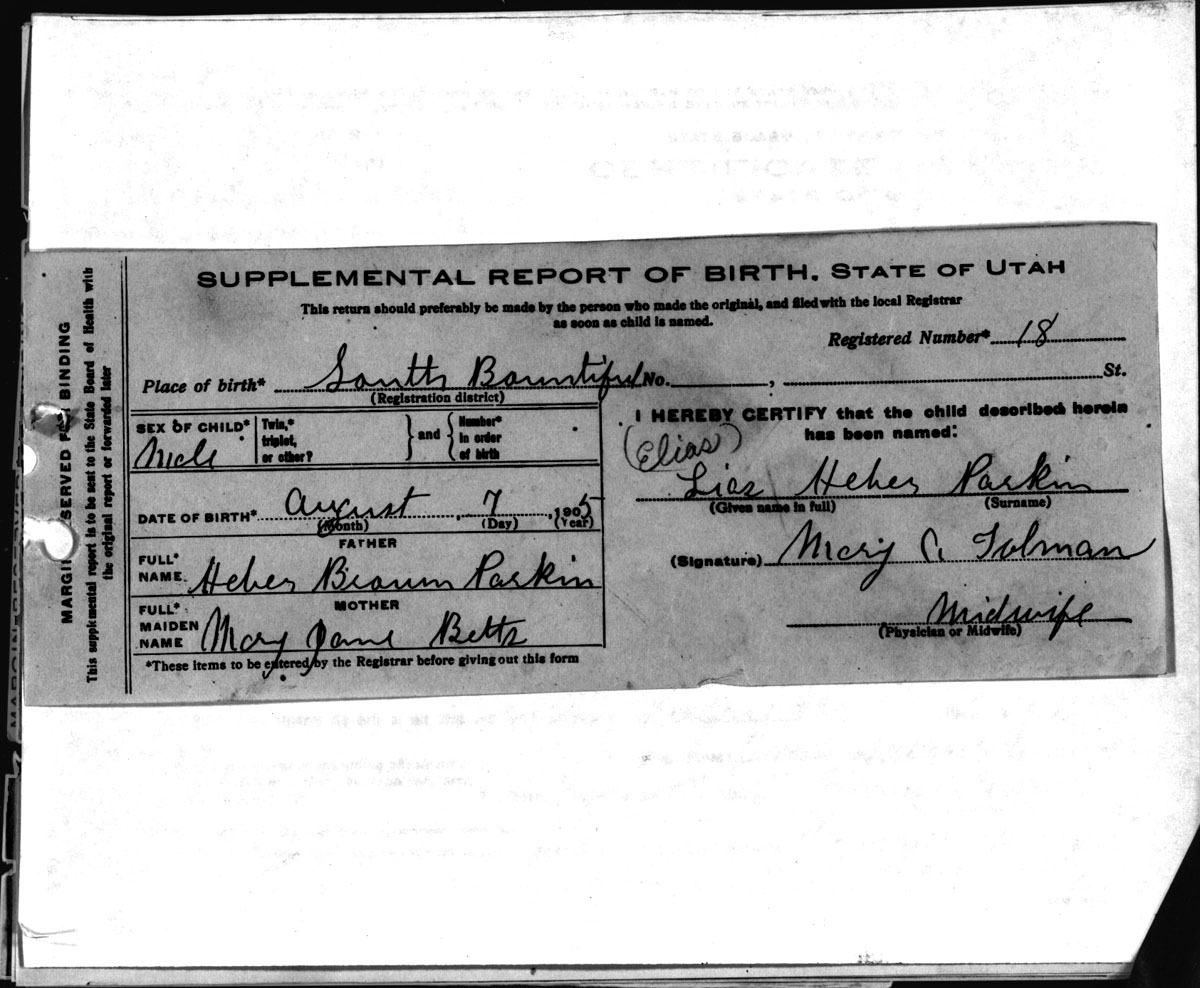 SUPPLEMENTAL REPORT OF BIRTH. STATE OF UTAH
This return should preferably be made by the person who made the original, and filed with the local Registrar
as soon as child is named.
Registered Number* 18
Place of birth* South Bountiful No. , St.
(Registration district)
SEX OF CHILD* Male
Twin,* triplet, or other? } and { Number* in order of birth
DATE OF BIRTH* August , 7 , 1905
(Month) (Day) (Year)
FATHER
FULL* NAME. Heber Brown Parkin
MOTHER
FULL* MAIDEN NAME Mary Jane Betts
*These items to be entered by the Registrar before giving out this form
I HEREBY CERTIFY that the child described herein
has been named:
(Elias)
Lias Heber Parkin
(Given name in full) (Surname)
(Signature) Mary A. Tolman
Midwife
(Physician or Midwife)
MARGIN RESERVED FOR BINDING
This supplemental report is to be sent to the State Board of Health with
the original report or forwarded later